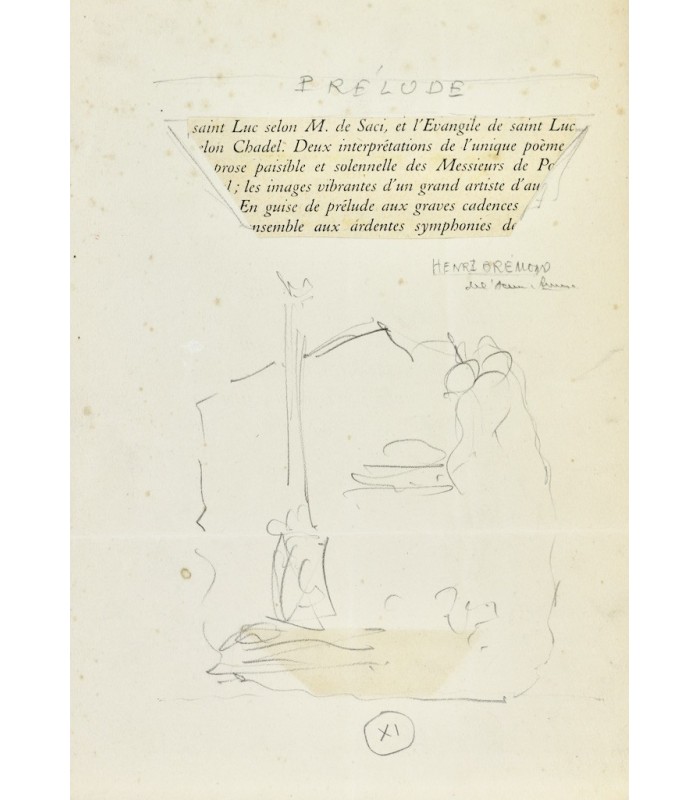 PRÉLUDE
saint Luc selon M. de Saci, et l'Evangile de saint Luc
elon Chadel. Deux interprétations de l'unique poème
prose paisible et solennelle des Messieurs de Po
l; les images vibrantes d'un grand artiste d'au
En guise de prélude aux graves cadences
nsemble aux árdentes symphonies de
HENRI BRÉMOND
XI